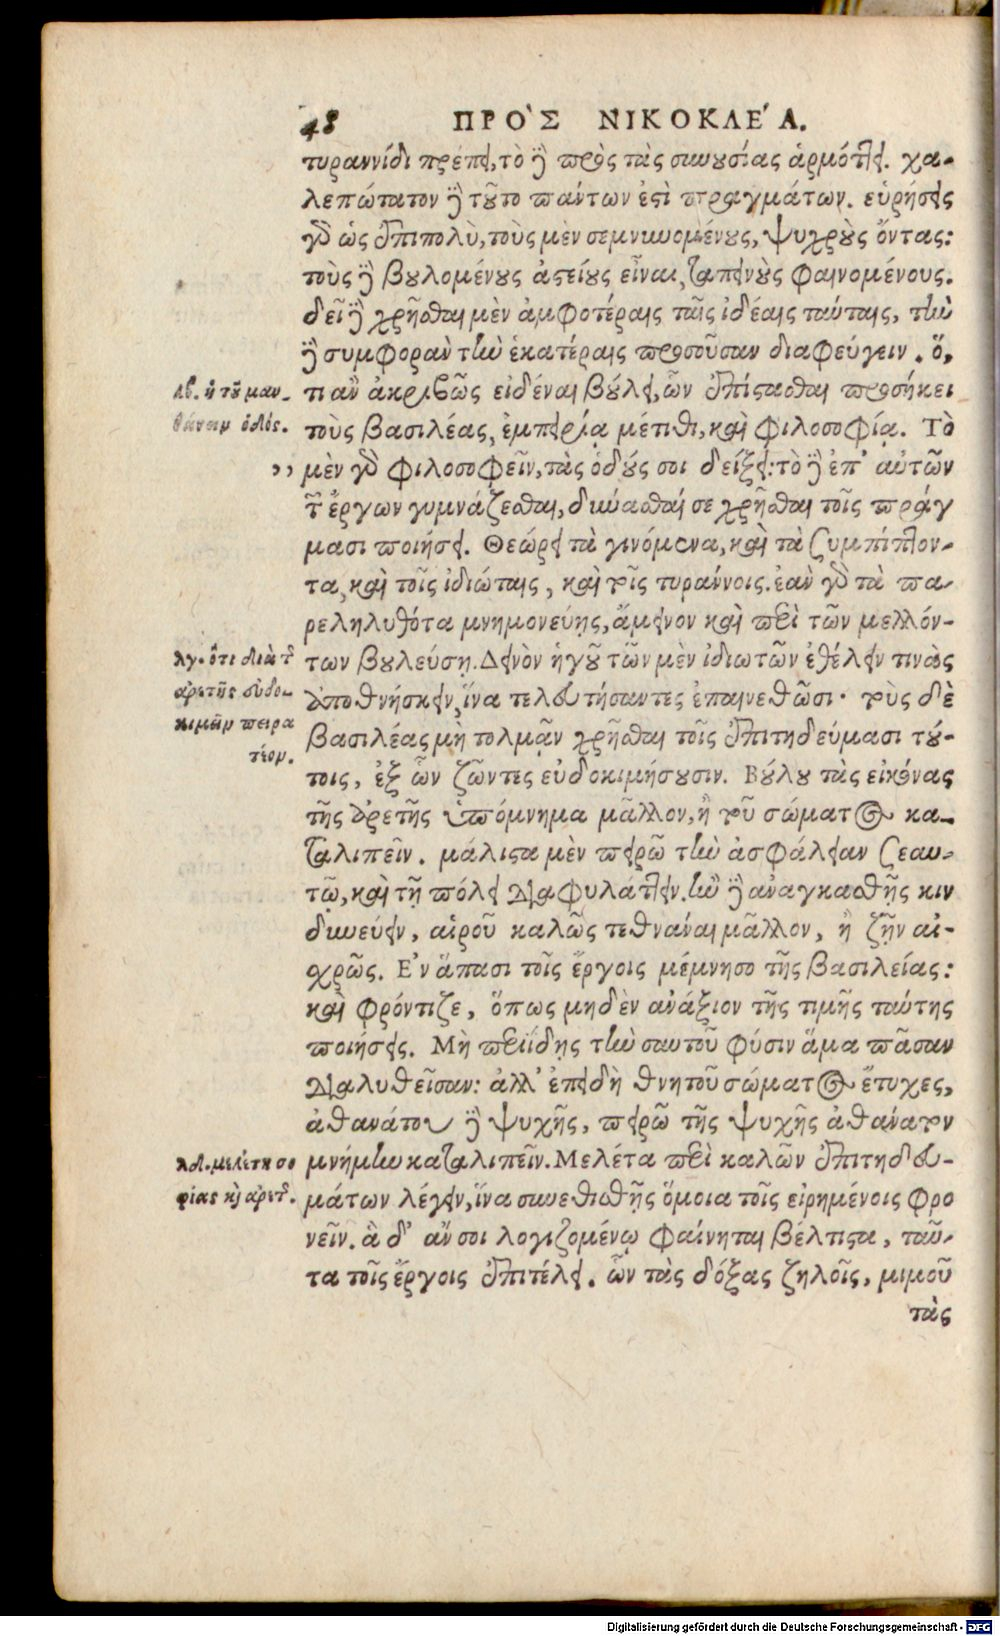 48 ΠΡΟ`Σ ΝΙΚΟΚΛΕ´Α.
τυραννίδι πρέπει, τὸ δὲ πρὸς τὰς συνουσίας ἁρμόττει. χα-
λεπώτατον δὲ τοῦτο πάντων ἐστὶ πραγμάτων. εὑρήσεις
γὰρ ὡς ἐπιπολὺ, τοὺς μὲν σεμνυνομένους, ψυχροὺς ὄντας:
τοὺς δὲ βουλομένους ἀστείους εἶναι, ταπεινοὺς φαινομένους.
δεῖ δὲ χρῆσθαι μὲν ἀμφοτέραις ταῖς ἰδέαις ταύταις, τὴν
δὲ συμφορὰν τὴν ἑκατέραις προσοῦσαν διαφεύγειν. ὅ,
λβ. ἡ τοῦ μαν-
τι ἂν ἀκριβῶς εἰδέναι βούλει, ὧν ἐπίστασθαι προσήκει
θάνειν ὁδός.
τοὺς βασιλέας, ἐμπειρίᾳ μέτιθι, καὶ φιλοσοφίᾳ. Τὸ
,, μὲν γὰρ φιλοσοφεῖν, τὰς ὁδούς σοι δείξει: τὸ δὲ ἐπ' αὐτῶν
τῶν ἔργων γυμνάζεσθαι, δύνασθαί σε χρῆσθαι τοῖς πράγ
μασι ποιήσει. Θεώρει τὰ γινόμενα, καὶ τὰ συμπίπτον-
τα, καὶ τοῖς ἰδιώταις, καὶ τοῖς τυράννοις. ἐὰν γὰρ τὰ πα-
ρεληλυθότα μνημονεύῃς, ἄμεινον καὶ περὶ τῶν μελλόν-
λγ. ὅτι διὰ τ
των βουλεύσῃ. Δεινὸν ἡγοῦ τῶν μὲν ἰδιωτῶν ἐθέλειν τινὰς
ἀρετῆς εὐδο-
ἀποθνήσκειν, ἵνα τελευτήσαντες ἐπαινεθῶσι· τοὺς δὲ
κιμεῖν πειρα
τέον.
βασιλέας μὴ τολμᾷν χρῆσθαι τοῖς ἐπιτηδεύμασι τού-
τοις, ἐξ ὧν ζῶντες εὐδοκιμήσουσιν. Βούλου τὰς εἰκόνας
τῆς ἀρετῆς ὑπόμνημα μᾶλλον, ἢ τοῦ σώματος κα-
ταλιπεῖν. μάλιστα μὲν πειρῶ τὴν ἀσφάλειαν σεαυ-
τῷ, καὶ τῇ πόλει διαφυλάττειν. ἢν δὲ ἀναγκασθῇς κιν
δυνεύειν, αἱροῦ καλῶς τεθνάναι μᾶλλον, ἢ ζῇν αἰ-
σχρῶς. Ἐν ἅπασι τοῖς ἔργοις μέμνησο τῆς βασιλείας:
καὶ φρόντιζε, ὅπως μηδὲν ἀνάξιον τῆς τιμῆς ταύτης
ποιήσεις. Μὴ περιίδῃς τὴν σαυτοῦ φύσιν ἅμα πᾶσαν
διαλυθεῖσαν: ἀλλ' ἐπειδὴ θνητοῦ σώματος ἔτυχες,
ἀθανάτου δὲ ψυχῆς, πειρῶ τῆς ψυχῆς ἀθάνατον
λδ. μελέτη σο
μνήμην καταλιπεῖν. Μελέτα περὶ καλῶν ἐπιτηδευ-
φίας καὶ ἀρετ.
μάτων λέγειν, ἵνα συνεθισθῇς ὅμοια τοῖς εἰρημένοις φρο
νεῖν. ἃ δ' ἄν σοι λογιζομένῳ φαίνηται βέλτιστα, ταῦ-
τα τοῖς ἔργοις ἐπιτέλει. ὧν τὰς δόξας ζηλοῖς, μιμοῦ
τὰς
Digitalisierung gefördert durch die Deutsche Forschungsgemeinschaft - DFG